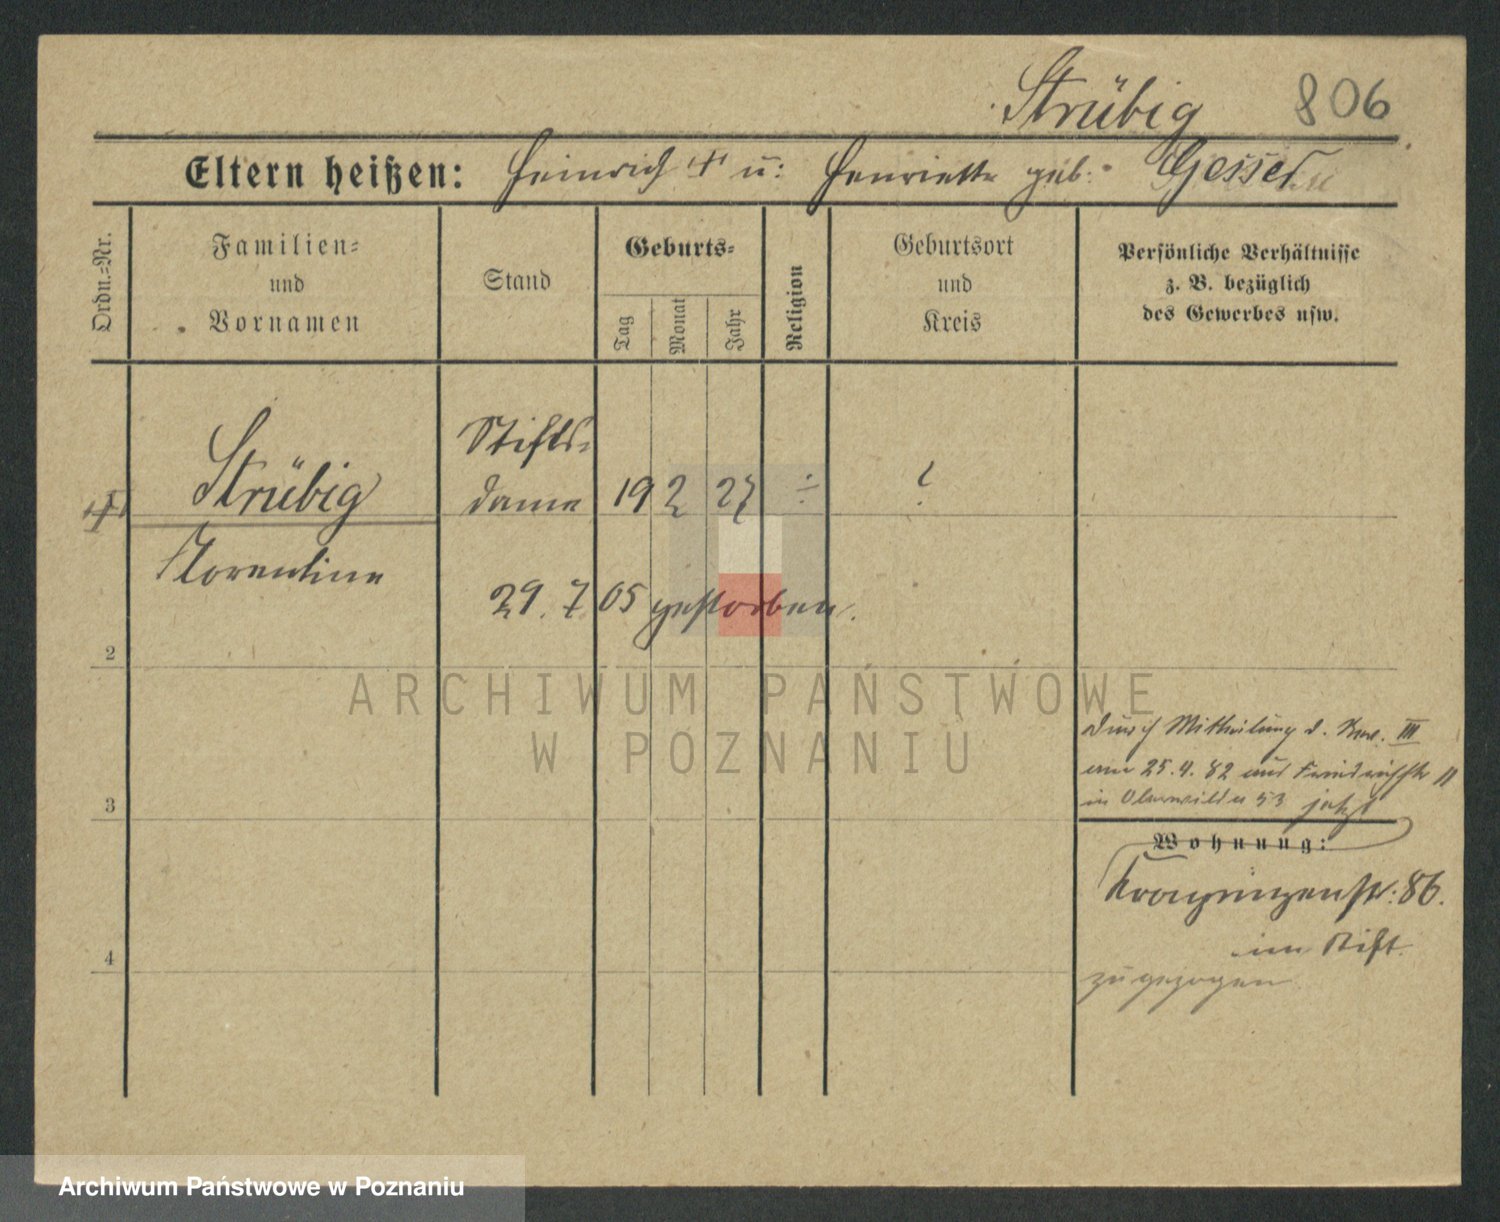 Strübig 806
Eltern heißen: Heinrich u: Henriette geb. Gesser
Ordn.-Nr.
Familien-
und
Vornamen
Stand
Geburts-
Tag
Monat
Jahr
Religion
Geburtsort
und
Kreis
Persönliche Verhältnisse
z. B. bezüglich
des Gewerbes usw.
Strübig
Stifts-
dame
19 2 27 ÷ ?
Florentine
29. 7 05 gestorben.
2
ARCHIWUM PAŃSTWOWE
W POZNANIU
durch Mittheilung d. III
25.4.82
in 53 jetzt
3
Wohnung:
Kronprinzenstr: 86.
im Stift.
zugezogen
4
Archiwum Państwowe w Poznaniu